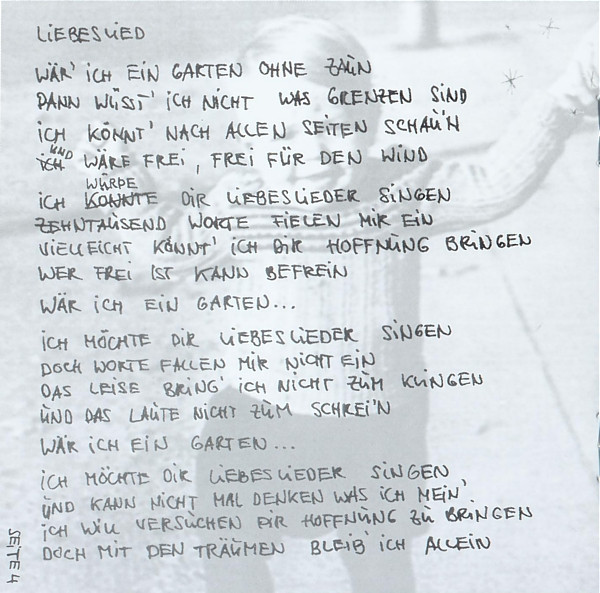 LIEBESLIED
WÄR' ICH EIN GARTEN OHNE ZAUN
DANN WÜSST' ICH NICHT WAS GRENZEN SIND
ICH KÖNNT' NACH ALLEN SEITEN SCHAU'N
UND
ICH WÄRE FREI, FREI FÜR DEN WIND
WÜRDE
ICH KÖNNTE DIR LIEBESLIEDER SINGEN
ZEHNTAUSEND WORTE FIELEN MIR EIN
VIELLEICHT KÖNNT' ICH DIR HOFFNUNG BRINGEN
WER FREI IST KANN BEFREIN
WÄR ICH EIN GARTEN...
ICH MÖCHTE DIR LIEBESLIEDER SINGEN
DOCH WORTE FALLEN MIR NICHT EIN
DAS LEISE BRING' ICH NICHT ZUM KLINGEN
UND DAS LAUTE NICHT ZUM SCHREI'N
WÄR ICH EIN GARTEN...
ICH MÖCHTE DIR LIEBESLIEDER SINGEN
UND KANN NICHT MAL DENKEN WAS ICH MEIN'
ICH WILL VERSUCHEN DIR HOFFNUNG ZU BRINGEN
DOCH MIT DEN TRÄUMEN BLEIB' ICH ALLEIN
SEITE 4